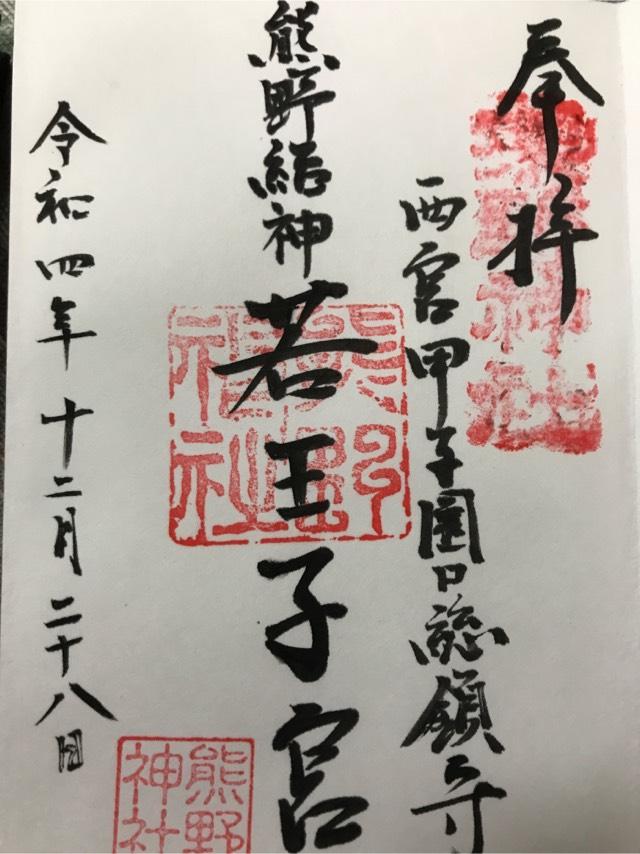 奉拝
西宮甲子園口総鎮守
熊野結神
若王子宮
令和四年十二月二十八日
熊野神社
熊野神社